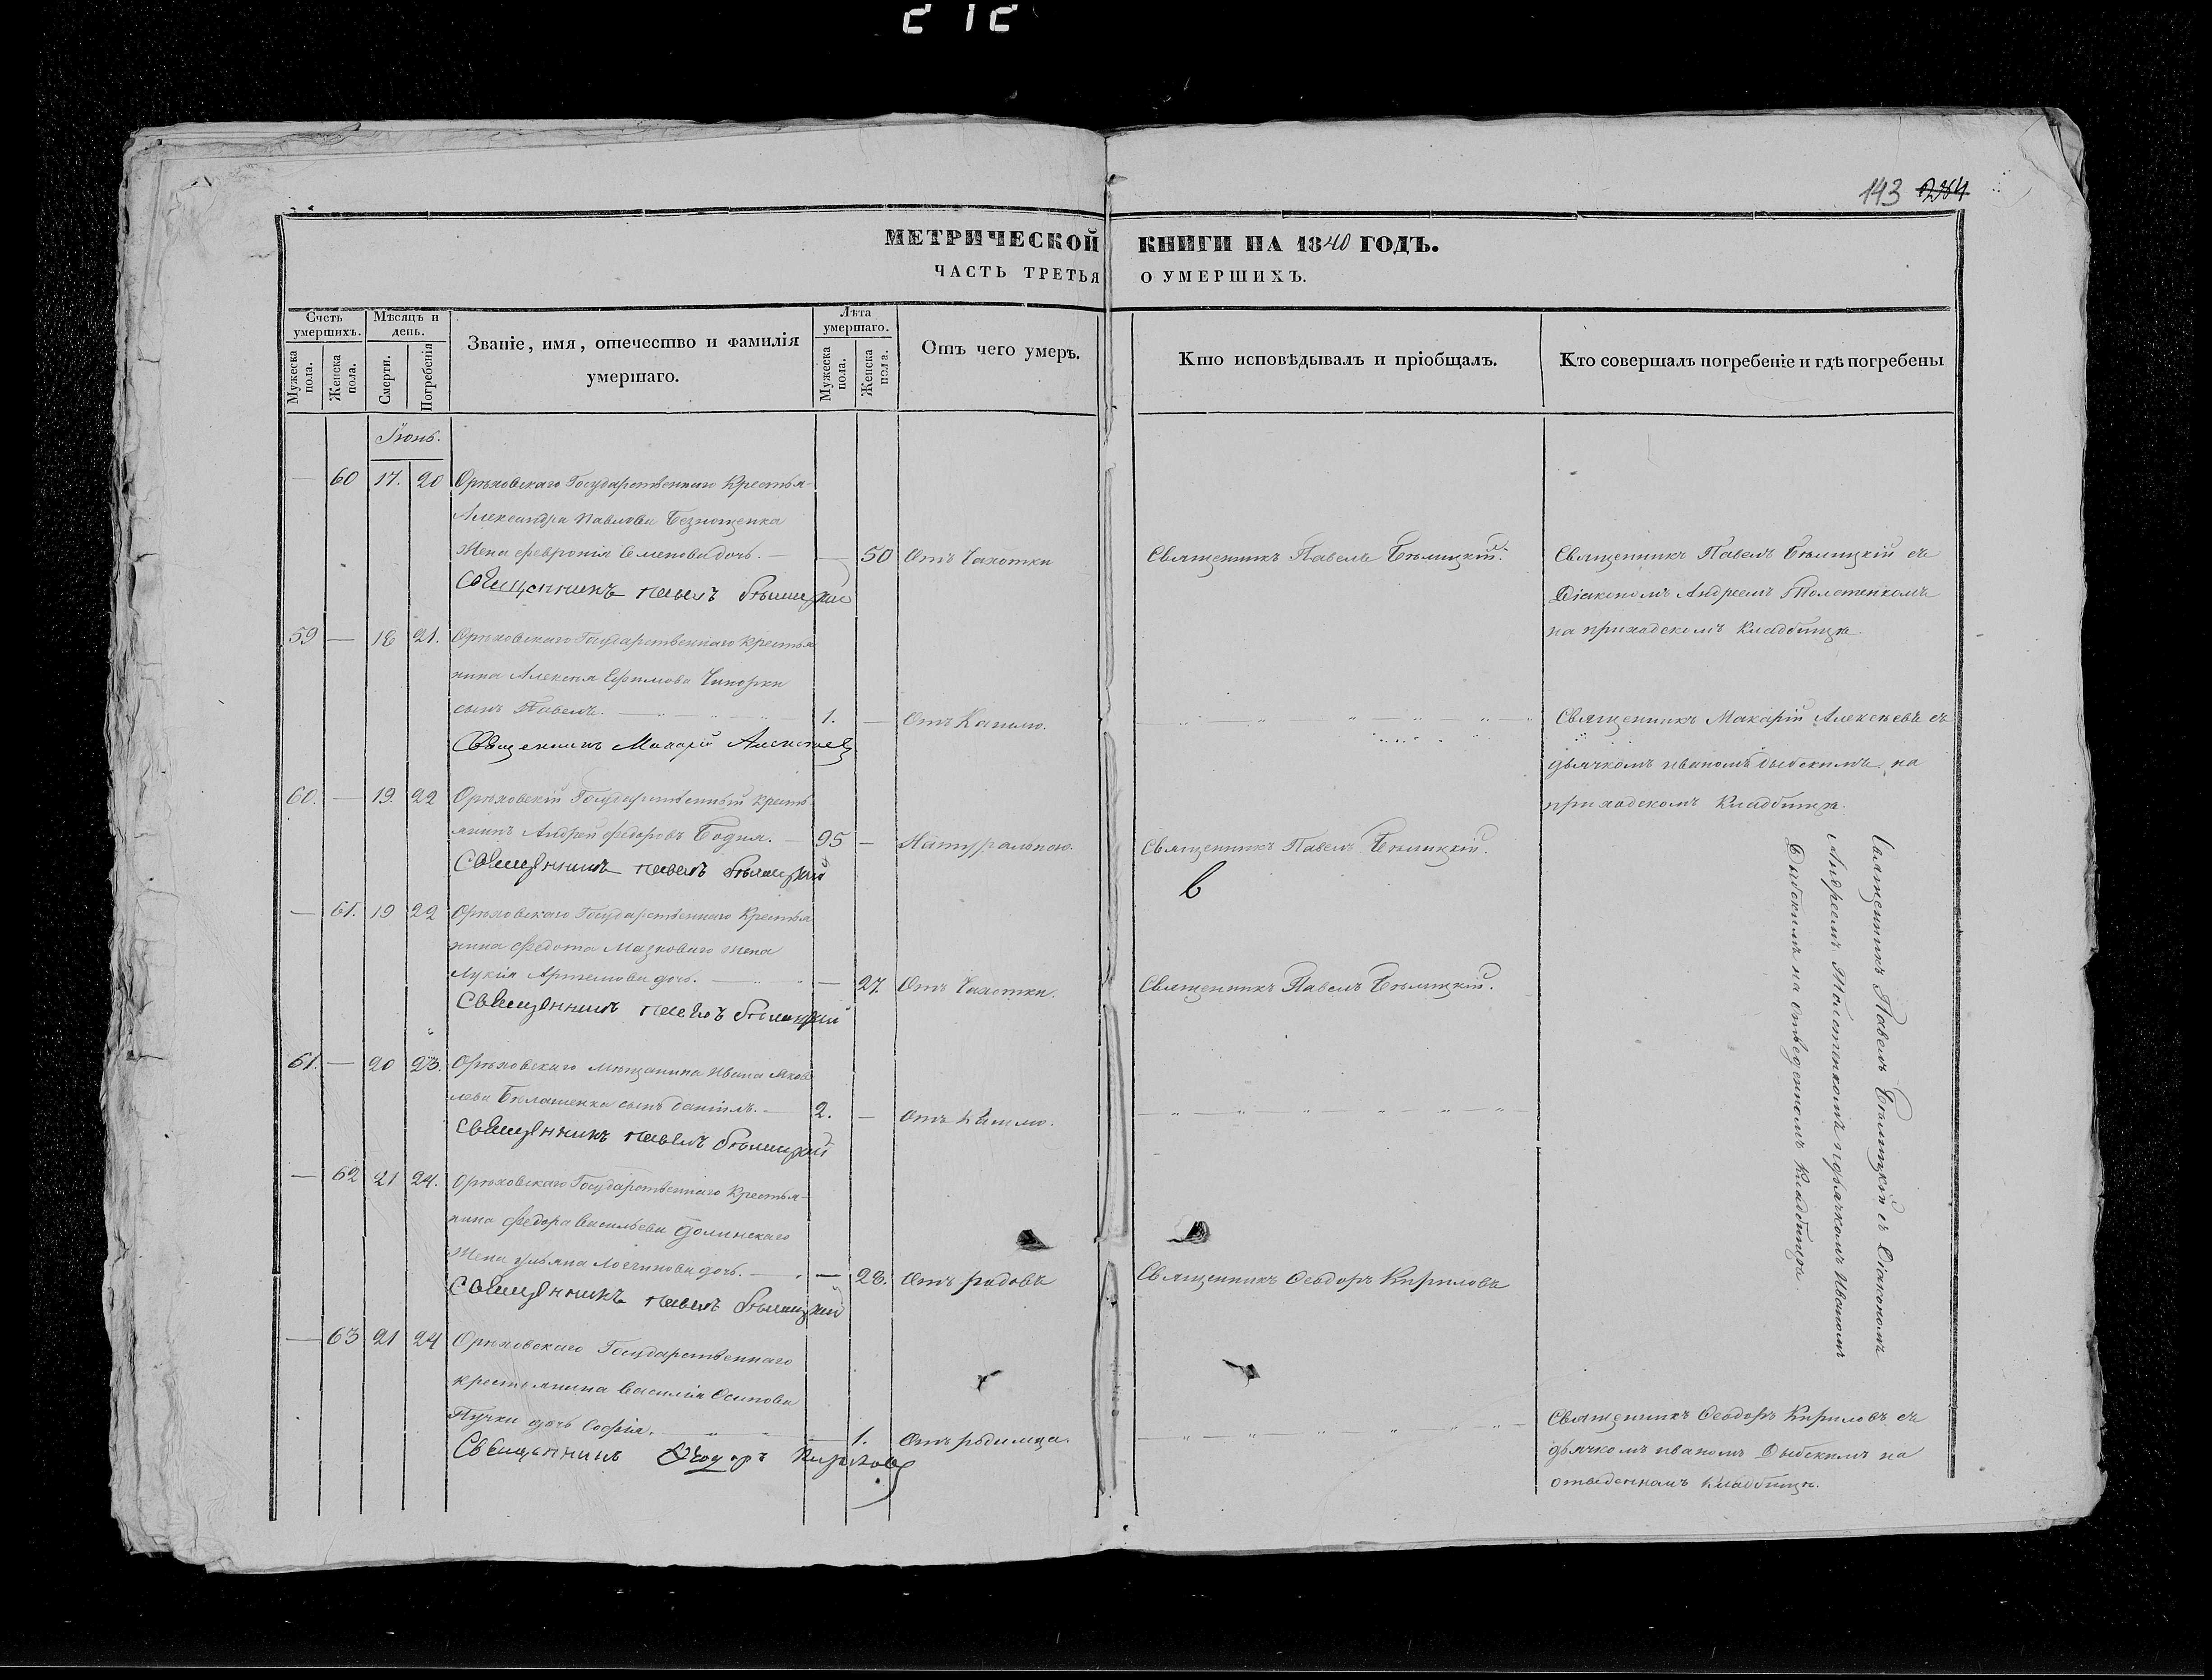 143 264
МЕТРИЧЕСКОЙ КНИГИ НА 1840 ГОДЪ.
ЧАСТЬ ТРЕТЬЯ О УМЕРШИХЪ.
Счетъ умершихъ.
Мужеска пола.
Женска пола.
Мѣсяцъ и день.
Смерти.
Погребенія
Званіе, имя, отечество и фамилія
умершаго.
Лѣта умершаго.
Мужеска пола.
Женска пола.
Отъ чего умеръ.
Кто исповѣдывалъ и пріобщалъ.
Кто совершалъ погребеніе и гдѣ погребены
Іюнь.
— 60 17. 20 Орѣховскаго Государственнаго Крестья-
Александра Павлова Безнощенка
Жена Февронія Семенова дочь. — — 50 Отъ Чахотки Священникъ Павелъ Бѣлицкій. Священникъ Павелъ Бѣлицкій съ
Священникъ Павелъ Бѣлицкій Діакономъ Андреемъ Толстенкомъ
на приходскомъ кладбищѣ.
59 — 18 21. Орѣховскаго Государственнаго Крестья
нина Алексѣя Ефимова Чипорки
сынъ Павелъ. 1. — Отъ Кашлю. Священникъ Макарій Алексѣевъ съ
Священникъ Макарій Алексѣевъ
дьячкомъ Иваномъ Дыбскимъ на
приходскомъ кладбищѣ.
60. — 19. 22 Орѣховскій Государственный Кресть
янинъ Андрей Федоровъ Бодня. — 95 — Натуральною. Священникъ Павелъ Бѣлицкій.
Священникъ Павелъ Бѣлицкій
— 61. 19 22 Орѣховскаго Государственнаго Крестья
нина Федота Мазковаго жена
Лукія Артемова дочь. — — 27. Отъ Чахотки. Священникъ Павелъ Бѣлицкій.
Священникъ Павелъ Бѣлицкій
61. — 20 23. Орѣховскаго мѣщанина Ивана Яков
лева Бѣлашенка сынъ Даніилъ. — 2. — Отъ Кашлю.
Священникъ Павелъ Бѣлицкій
— 62 21 24. Орѣховскаго Государственнаго Крестья-
нина Федора Васильева Долинскаго
Жена Ульяна Логинова дочь. — — 28. Отъ родовъ Священникъ Ѳеодоръ Кириловъ
Священникъ Павелъ Бѣлицкій
Священникъ Павелъ Бѣлицкій съ Діакономъ
Андреемъ Толстенкомъ и дьячкомъ Иваномъ
Дыбскимъ на отведенномъ кладбищѣ
— 63 21 24 Орѣховскаго Государственнаго
крестьянина Василія Осипова
Пучки дочь Софія. — 1. Отъ родимца. Священникъ Ѳеодоръ Кириловъ съ
Священникъ Ѳеодоръ Кириловъ дьячкомъ Иваномъ Дыбскимъ на
отведенномъ кладбищѣ.